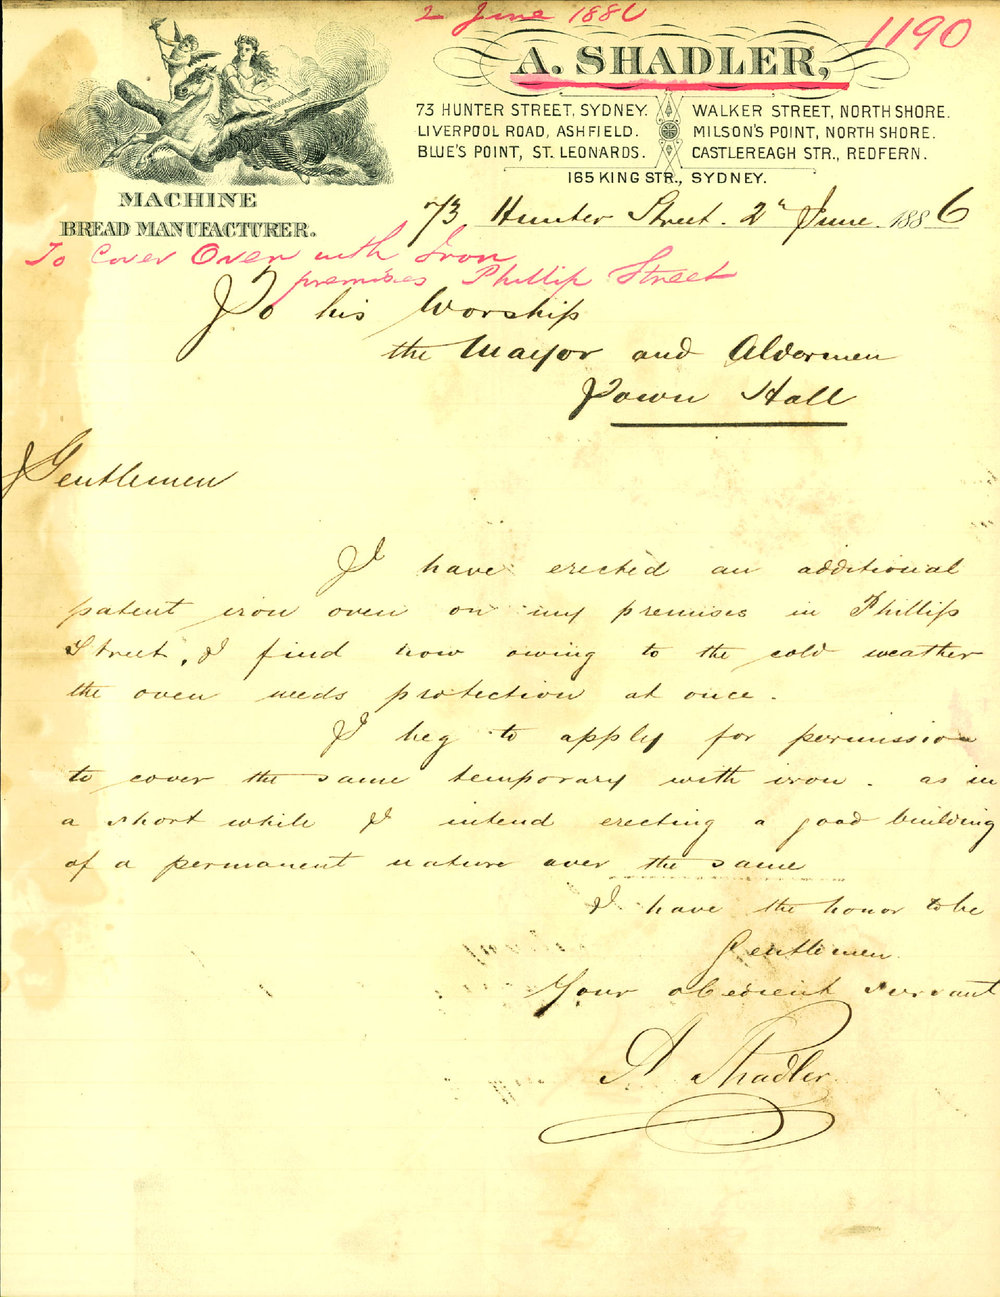 2 June 1886
1190
A. SHADLER,
73 HUNTER STREET, SYDNEY.
LIVERPOOL ROAD, ASHFIELD.
BLUE'S POINT, ST. LEONARDS.
WALKER STREET, NORTH SHORE.
MILSON'S POINT, NORTH SHORE.
CASTLEREAGH STR., REDFERN.
165 KING STR., SYDNEY.
MACHINE
BREAD MANUFACTURER.
73 Hunter Street. 2n June 1886
To Cover Oven with Iron
premises Phillip Street
To his Worship
the Mayor and Aldermen
Town Hall
Gentlemen
I have erected an additional
patent iron oven on my premises in Phillip
Street, I find now owing to the cold weather
the oven needs protection at once.
I beg to apply for permission
to cover the same temporary with iron. as in
a short while I intend erecting a good building
of a permanent nature over the same
I have the honor to be
Gentlemen
Your obedient servant
A. Shadler